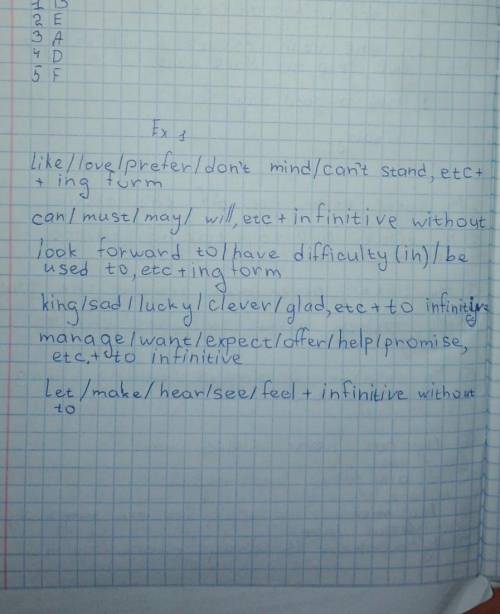 1 B
2 E
3 A
4 D
5 F
Ex 1
like/love/prefer/don't mind/can't stand, etc+
+ ing furm
can/must/may/ will, etc + infinitive without
look forward to/have difficulty (in)/be
used to, etc + ing form
king/sad/lucky/clever/glad, etc + to infinitive
manage/want/expect/offer/help/promise,
etc. + to infinitive
Let/make/hear/see/feel + infinitive without
to